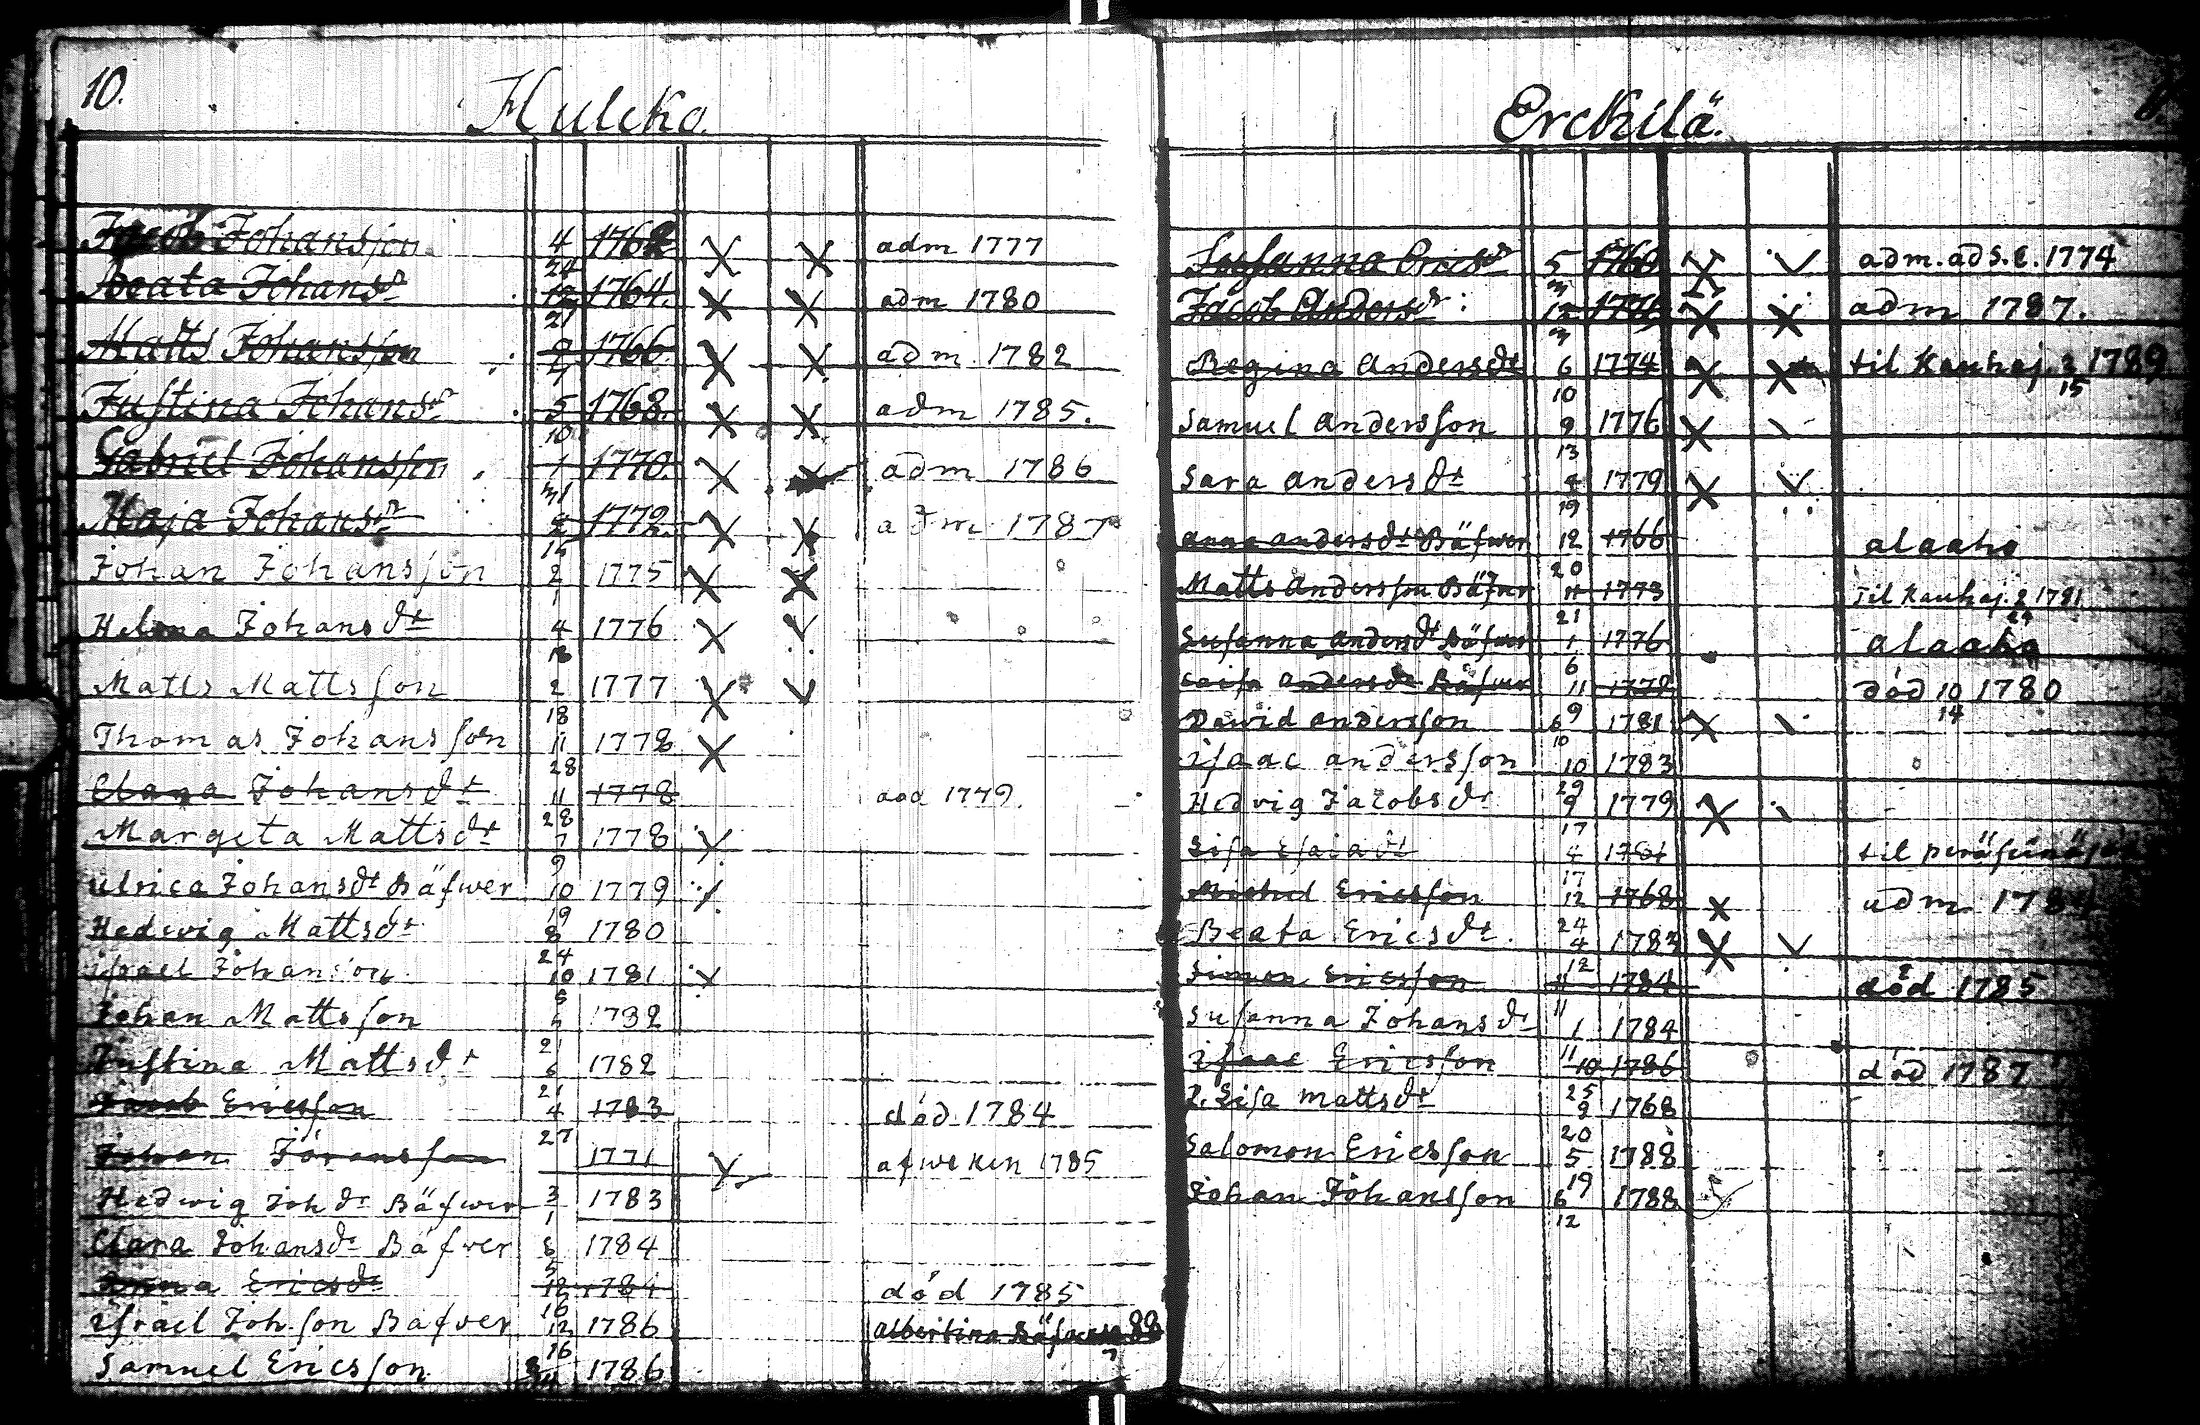 10.
Hulcko.
Jacob Johansson 4 24 1762 X X adm 1777
Beata Johansdr 21 1764 X X adm 1780
Matts Johansson 1766 X X adm 1782
Justina Johansdr 5 10 1768 X X adm 1785.
Gabriel Johansson 1 31 1770 X adm 1786
Maja Johansdr 1772 X X adm 1787
Johan Johansson 2 1 1775 X X
Helena Johansdt 4 18 1776 X
Matts Mattsson 2 18 1777 X
Thomas Johansson 11 28 1778 X
Johansdt 11 28 1778 1779.
Margeta Mattsdt 7 9 1778
Ulrica Johansdt Bäfwer 10 19 1779
Hedwig Mattsdt 8 24 1780
israel Johanson 10 1781
Johan Mattsson 1782
Justina Mattsdt 6 21 1782
Jacob Ericsson 4 27 1783 död 1784
Johan Jöransson 1771 afweken 1785
Hedwig Johdr Bäfwer 3 1 1783
Clara Johansdr Bäfwer 1784
Anna Ericsdr 12 16 1784 död 1785
israel Johson Bäfver 12 16 1786 albertina
Samuel Ericsson 1786
Erckilä.
Susanna Ericsdr 5 1760 X adm. ad S. C. 1774
Jacob Anders 12 X X adm 1787.
Regina Andersdt 6 10 1774 X X til Kauhaj. 3 15 1789
Samuel Andersson 9 13 1776 X
Sara Andersdt 19 1779 X
Anna Andersdt Bäfwer 12 20 1766 alaaho
Matts Andersson Bäfwer 11 21 1773 Til Kauhaj. 1781
Susanna Andersdt Bäfwer 1 6 1776 alaaho
Caisa Andersdr Bäfwer 11 9 död 10 14 1780
David Andersson 6 10 1781 X
isaac Andersson 10 29 1783
Hedvig Jacobsdr 9 17 1779 X
Lisa Esaiadt 4 17 til
Michel Ericsson 12 24 1768 X adm
Beata Ericsdt. 4 12 X
Simon Ericsson 11 11 1784 död 1785
Susanna Johansdr 1 11 1784
isaac Ericsson 10 25 1786 död 1787
Lisa Mattsdt 20 1768
Salomon Ericsson 5 19 1788
Johan Johansson 6 12 1788